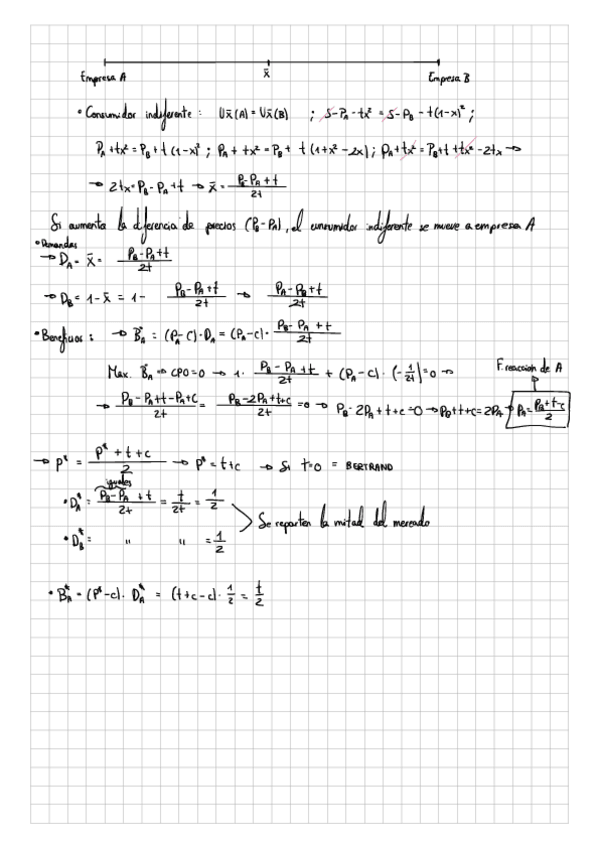 Empresa A x̄ Empresa B
• Consumidor indiferente : Ux̄(A) = Ux̄(B) ; S-PA-tx² = S-PB-t(1-x)² ;
PA+tx² = PB+t(1-x)² ; PA+tx² = PB+ t(1+x²-2x) ; PA+tx² = PB+t+tx²-2tx →
→ 2tx = PB-PA+t → x̄ = (PB-PA+t)/2t
Si aumenta la diferencia de precios (PB-PA), el consumidor indiferente se mueve a empresa A
• Demandas
→ DA = x̄ = (PB-PA+t)/2t
→ DB = 1-x̄ = 1- (PB-PA+t)/2t → (PA-PB+t)/2t
• Beneficios : → BA = (PA-C)·DA = (PA-c)· (PB-PA+t)/2t
Max. BA → CPO=0 → 1· (PB-PA+t)/2t + (PA-C)·(-1/2t) = 0 →
F. reaccion de A
→ (PB-PA+t-PA+C)/2t = (PB-2PA+t+c)/2t = 0 → PB-2PA+t+c=0 → PB+t+c=2PA → PA = (PB+t-c)/2
→ P* = (P*+t+c)/2 → P* = t+c → Si t=0 = BERTRAND
iguales
• DA* = (PB-PA+t)/2t = t/2t = 1/2
Se reparten la mitad del mercado
• DB* = " " = 1/2
• BA* = (P*-c)· DA* = (t+c-c)· 1/2 = t/2